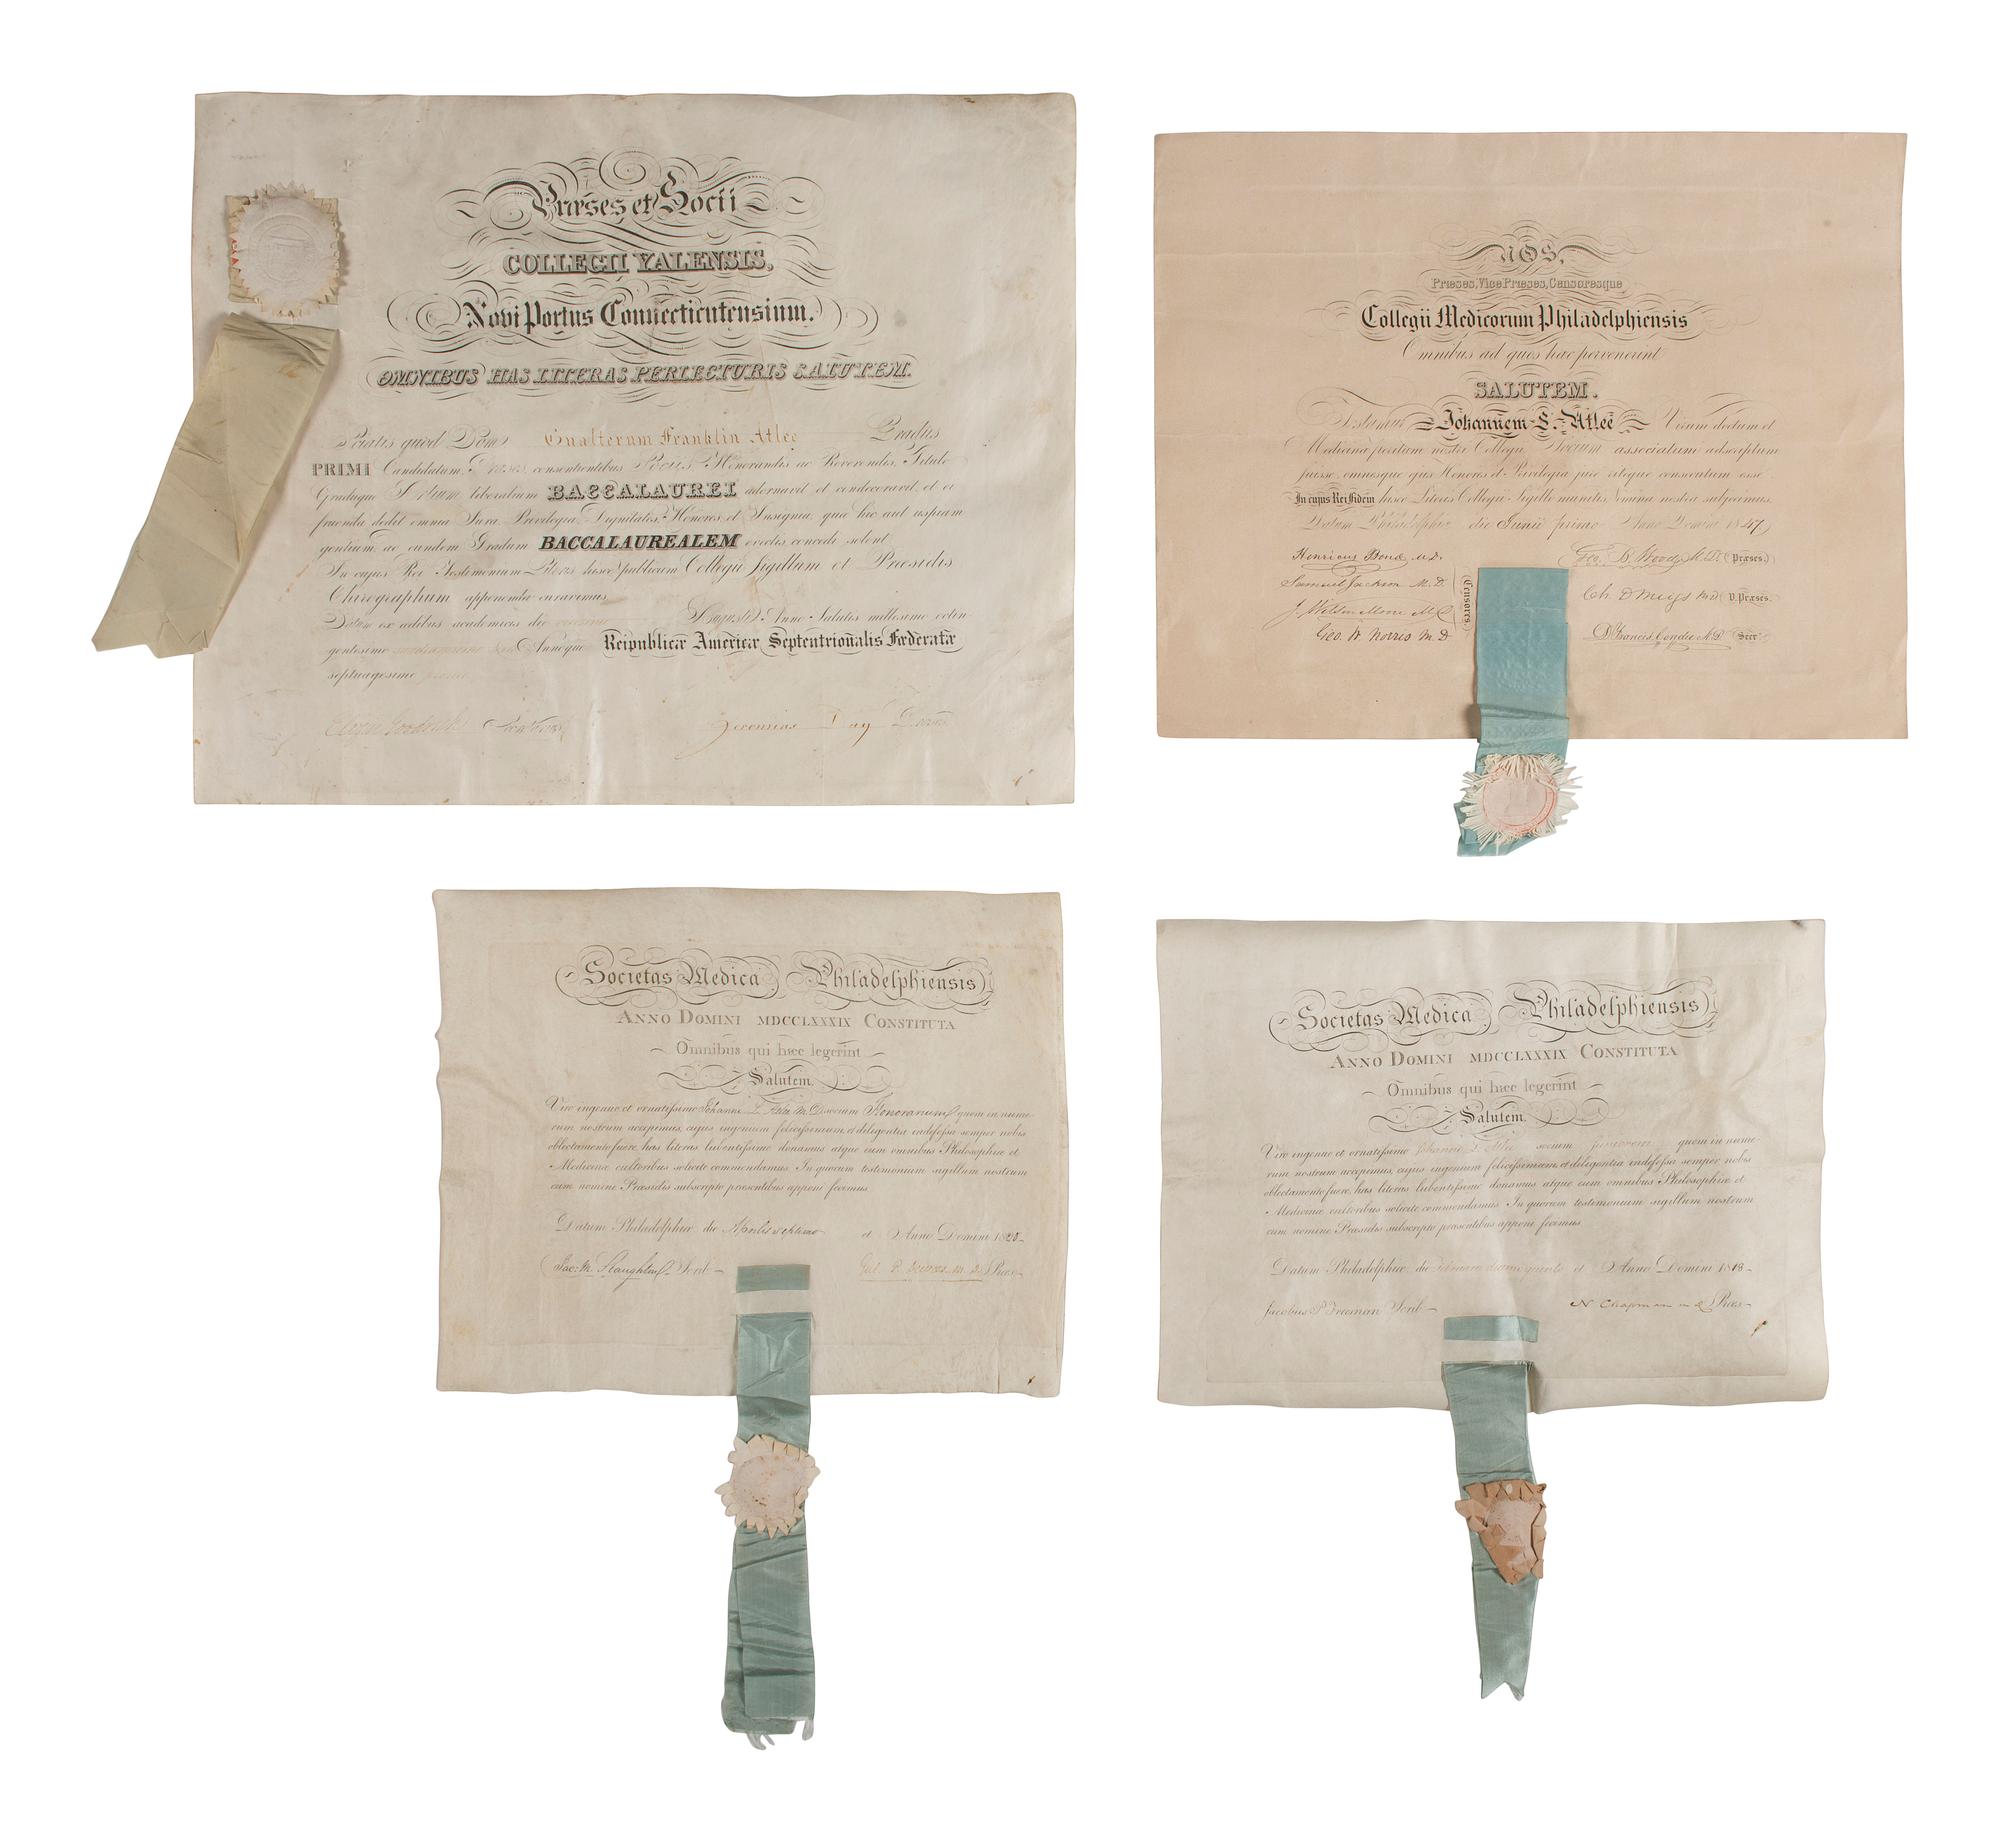 Præses et Socii
COLLEGII YALENSIS,
Novi Portus Connecticutensium.
OMNIBUS HAS LITERAS PERLECTURIS SALUTEM.
quod Dom Gualterum Franklin Atlee Gradus
PRIMI Candidatum, Præses, consentientibus Sociis, Honorandis ac Reverendis, Titulo
Graduque Artium liberalium BACCALAUREI adornavit et condecoravit, et ei
fruenda dedit omnia Jura, Privilegia, Dignitates, Honores, et Insignia, quæ hic aut uspiam
gentium, ac eundem Gradum BACCALAUREALEM evectis, concedi solent
In cujus Rei Testimonium Literis hisce publicum Collegii Sigillum et Præsidis
Chirographum apponenda curavimus.
Datum ex ædibus academicis die Augusti Anno Salutis millesimo octin
gentesimo Annoque Reipublicæ Americæ Septentrionalis Fœderatæ
septuagesimo
Jeremias Day Præses
NOS,
Præses, Vice Præses, Censoresque
Collegii Medicorum Philadelphiensis
Omnibus ad quos hæc pervenerint
SALUTEM.
Testamur Johannem S. Atlee Virum doctum et
Medicinæ peritum nostri Collegii Socium associatum adscriptum
fuisse, omnesque ejus Honores et Privilegia jure atque consecutum esse
In cujus Rei Fidem hisce Literis Collegii Sigillo munitis Nomina nostra subjecimus,
Datum Philadelphiæ die Junii primo Anno Domini 1847
Henricus Bond M.D. Geo. B. Wood M.D. Præses.
Samuel Jackson M.D.
Ch. D Meigs MD V. Præses.
Censores
Geo. W Norris M.D
D Francis Condie M.D. Secr.
Societas Medica Philadelphiensis
ANNO DOMINI MDCCLXXXIX CONSTITUTA
Omnibus qui hæc legerint
Salutem.
Viro ingenuo et ornatissimo Johanni L. Atlee M.D. socium Honorarium quem in nume-
rum nostrum accepimus, cujus ingenium felicissimum, et diligentia indefessa semper nobis
oblectamento fuere, has literas lubentissime donamus atque eum omnibus Philosophiæ et
Medicinæ cultoribus solicite commendamus In quorum testimonium sigillum nostrum
cum nomine Præsidis subscripto præsentibus apponi fecimus
Datum Philadelphiæ die Aprilis septimo et Anno Domini 1820
Scrib Præs
Societas Medica Philadelphiensis
ANNO DOMINI MDCCLXXXIX CONSTITUTA
Omnibus qui hæc legerint
Salutem.
Viro ingenuo et ornatissimo Johanni L. Atlee socium juniorem quem in nume-
rum nostrum accepimus, cujus ingenium felicissimum, et diligentia indefessa semper nobis
oblectamento fuere, has literas lubentissime donamus atque eum omnibus Philosophiæ et
Medicinæ cultoribus solicite commendamus In quorum testimonium sigillum nostrum
cum nomine Præsidis subscripto præsentibus apponi fecimus
Datum Philadelphiæ die et Anno Domini 1818
Jacobus P. Freeman Scrib N Chapman M D Præs